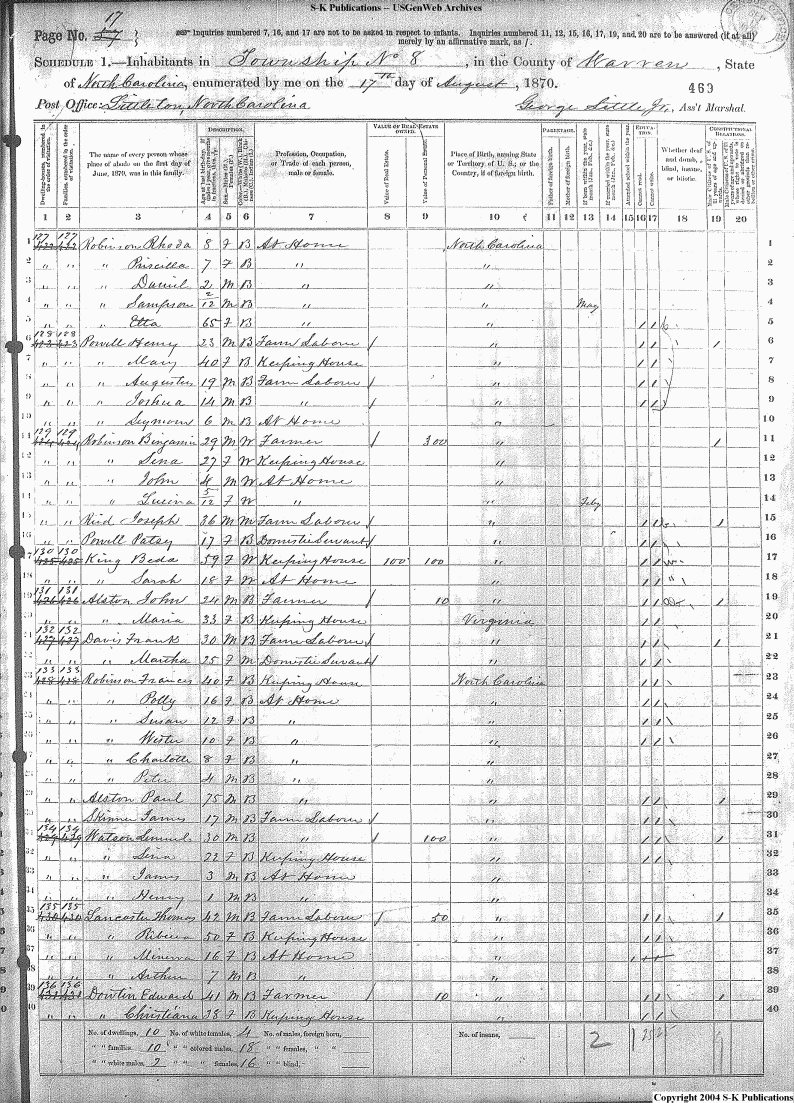 S-K Publications -- USGenWeb Archives
17
Page No. 57
Inquiries numbered 7, 16, and 17 are not to be asked in respect to infants. Inquiries numbered 11, 12, 15, 16, 17, 19, and 20 are to be answered (if at all) merely by an affirmative mark, as /.
SCHEDULE 1.—Inhabitants in Township No 8, in the County of Warren, State
of North Carolina, enumerated by me on the 17th day of August, 1870.
469
Post Office: Littleton, North Carolina
George Little Jr, Ass't Marshal.
DESCRIPTION. VALUE OF REAL ESTATE OWNED. PARENTAGE. EDUCATION. CONSTITUTIONAL RELATIONS.
The name of every person whose place of abode on the first day of June, 1870, was in this family.
Profession, Occupation, or Trade of each person, male or female.
Value of Real Estate.
Value of Personal Estate.
Place of Birth, naming State or Territory of U. S.; or the Country, if of foreign birth.
Father of foreign birth.
Mother of foreign birth.
Attended school within the year.
Cannot read.
Cannot write.
Whether deaf and dumb, blind, insane, or idiotic.
1 2 3 4 5 6 7 8 9 10 11 12 13 14 15 16 17 18 19 20
1 127 127 Robinson Rhoda 8 F B At Home North Carolina 1
2 " " " Priscilla 7 F B " " 2
3 " " " Daniel 2 M B " " 3
4 " " " Sampson 2/12 M B " " May 4
5 " " " Etta 65 F B " " / / 5
6 128 128 Powell Henry 23 M B Farm Laborer / " / / / 6
7 " " " Mary 40 F B Keeping House " / / 7
8 " " " Augustus 19 M B Farm Laborer / " / / 8
9 " " " Joshua 14 M B " / " / / 9
10 " " " Seymour 6 M B At Home " 10
11 129 129 Robinson Bengamin 29 M W Farmer / 300 " / 11
12 " " " Sena 27 F W Keeping House " 12
13 " " " John 4 M W At Home " 13
14 " " " Lucina 5/12 F W " " Feby 14
15 " " Ried Joseph 36 M M Farm Laborer / " / / / 15
16 " " Powell Patsy 17 F B Domestic Servant / " / / 16
17 130 130 King Beda 59 F W Keeping House 100 100 " / / 17
18 " " " Sarah 18 F W At Home " / / 18
19 131 131 Alston John 24 M B Farmer / 10 " / / / 19
20 " " " Maria 33 F B Keeping House Virginia / / 20
21 132 132 Davis Frank 30 M B Farm Laborer / " / / / 21
22 " " " Martha 25 F M Domestic Servant / " / / 22
23 133 133 Robinson Frances 40 F B Keeping House North Carolina / / 23
24 " " " Polly 16 F B At Home " / / 24
25 " " " Susan 12 F B " " / / 25
26 " " " Wester 10 F B " " / / 26
27 " " " Charlotte 8 F B " " 27
28 " " " Peter 4 M B " " 28
29 " " Alston Paul 75 M B " " / / / 29
30 " " Skinner James 17 M B Farm Laborer / " / / 30
31 134 134 Watson Lemuel 30 M B " / 100 " / / / 31
32 " " " Sina 22 F B Keeping House " / / 32
33 " " " James 3 M B At Home " 33
34 " " " Henry 1 M B " " 34
35 135 135 Lancaster Thomas 42 M B Farm Laborer / 50 " / / / 35
36 " " " Ribecca 50 F B Keeping House " / / 36
37 " " " Minerva 16 F B At Home " / 37
38 " " " Arthur 7 M B " " 38
39 136 136 Dowtin Edward 41 M B Farmer / 10 " / / / 39
40 " " " Christiana 38 F B Keeping House " / / 40
No. of dwellings, 10 No. of white females, 4 No. of males, foreign born, No. of insane,
" " families, 10 " " colored males, 18 " " females, " "
" " white males, 2 " " " females, 16 " " blind,
2 1 25 25 9
Copyright 2004 S-K Publications